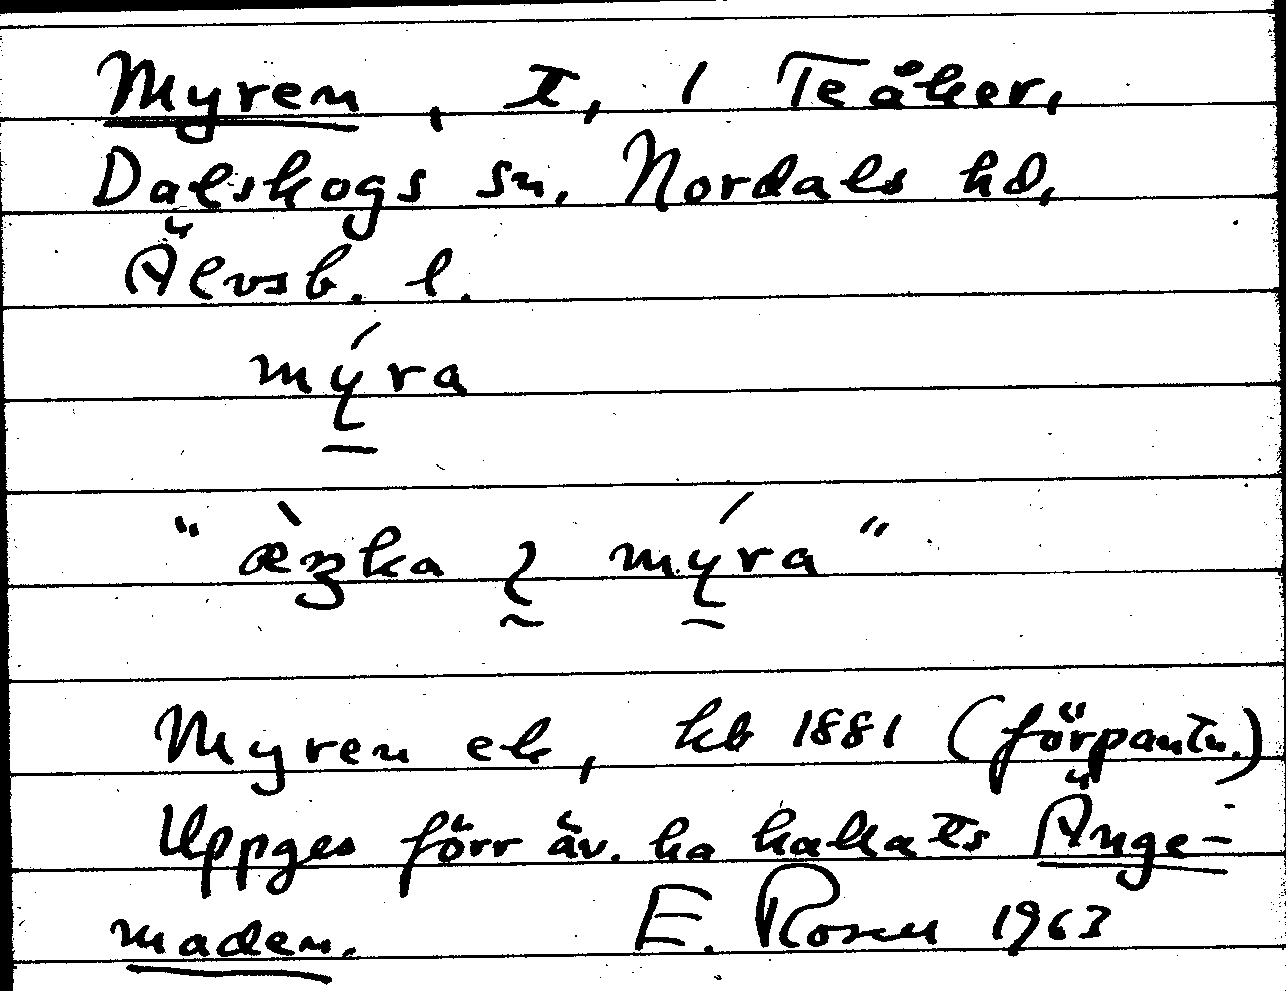 Myren, t, 1 Teåker,
Dalskogs sn. Nordals hd,
Älvsb. l.
mýra
"æ̀ʒka ɩ mýra"
Myren ek, kb 1881 (förpantn.)
Uppges förr äv. ha kallats Änge-
maden. E. Rosell 1963